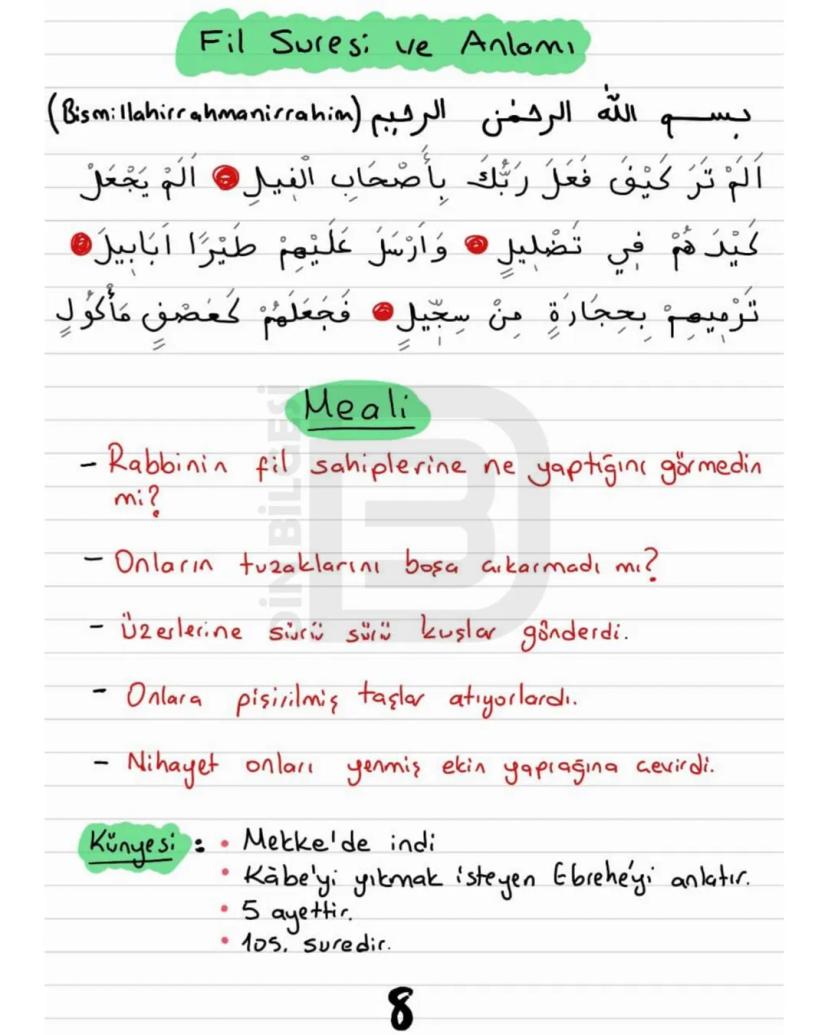 Fil Suresi ve Anlamı
بسم الله الرحمٰن الرحيم (Bismillahirrahmanirrahim)
اَلَمْ تَرَ كَيْفَ فَعَلَ رَبُّكَ بِأَصْحَابِ الْفِيلِ اَلَمْ يَجْعَلْ
كَيْدَهُمْ فِي تَضْلِيلٍ وَاَرْسَلَ عَلَيْهِمْ طَيْرًا اَبَابِيلَ
تَرْمِيهِمْ بِحِجَارَةٍ مِنْ سِجِّيلٍ فَجَعَلَهُمْ كَعَصْفٍ مَأْكُولٍ
Meali
- Rabbinin fil sahiplerine ne yaptığını görmedin
mi?
- Onların tuzaklarını boşa çıkarmadı mı?
- Üzerlerine sürü sürü kuşlar gönderdi.
- Onlara pişirilmiş taşlar atıyorlardı.
- Nihayet onları yenmiş ekin yaprağına çevirdi.
Künyesi : • Mekke'de indi
• Kâbe'yi yıkmak isteyen Ebrehe'yi anlatır.
• 5 ayettir.
• 105. suredir.
8
DİN BİLGESİ